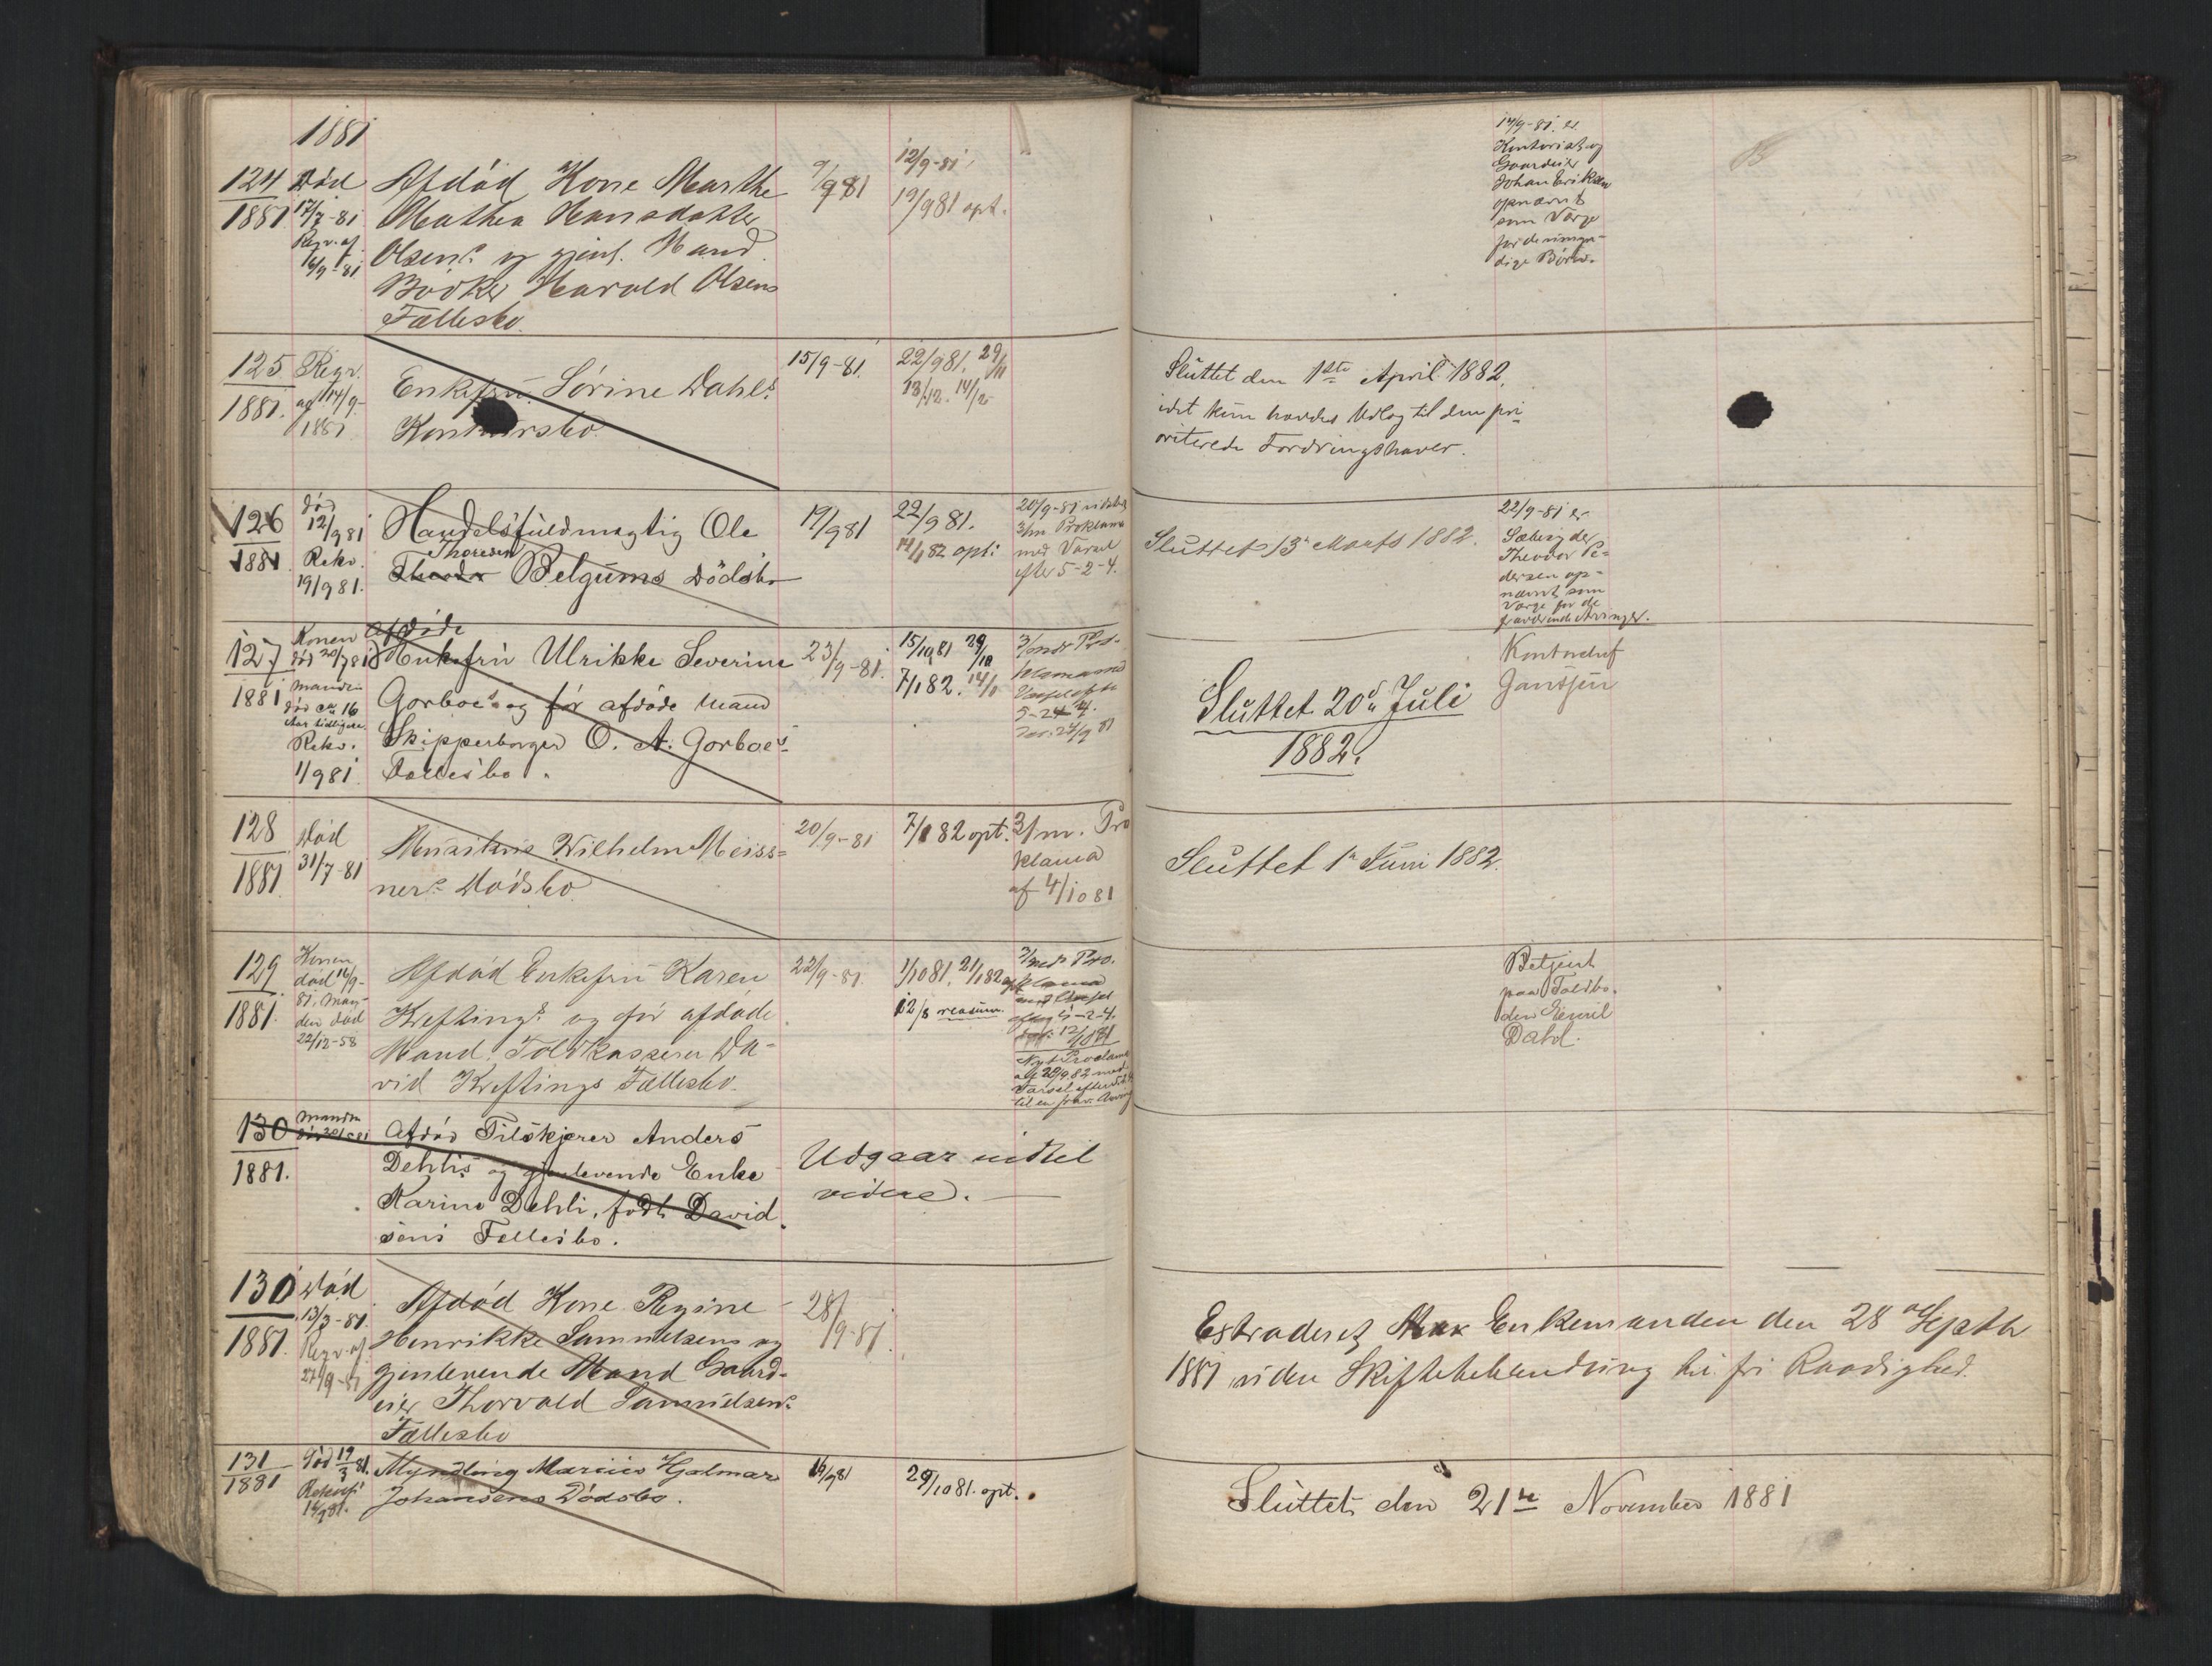 1881
124
1881
Död
17/7-81
Regv. af
16/9-81
Afdöd Kone Marthe
Mathea Hansdatter
Olsens og gjenl. Mand
Bödker Harald Olsens
Fællesbo.
9/9 81
12/9-81
19/9 81 opt.
17/9-81 er
Kontorist og
Gaardeier
Johan Eriksen
opnævnt
som Værge
for de umyn-
dige Börn.
125
1881.
Regv.
af 14/9-
1881
Enkefru Sörine Dahls
Konkursbo.
15/9-81.
22/9 81. 29/11
13/12. 14/12
Sluttet den 1ste April 1882,
idet kun havdes Udlæg til den pri-
oriterede Fordringshaver.
126
1881
död
12/9 81
Rekv.
19/9 81.
Handelsfuldmægtig Ole
Thoresen
Belgums Dödsbo
19/9 81
22/9 81.
14/1 82 opt:
20/9-81 udstedt
3/m Proklama
med Varsel
efter 5-2-4.
Sluttet 13de Marts 1882.
22/9-81 er
Theodor Pe-
dersen op-
nævnt som
Værge for de
fraværende Arvinger.
127
1881
Konen
död 20/7 81
Manden
död ca 16
Aar tidligere.
Rekv.
1/9 81
Afdöde
Enkefru Ulrikke Severine
Gorboes og för afdöde Mand
Skipperborger O. A. Gorboes
Fællesbo.
23/9-81.
15/10 81 29/10
7/1 82. 14/1
5-2-4.
Sluttet 20de Juli
1882.
Kontorchef
Janssen
128
1881
Död
31/7-81
Musikus Wilhelm Meiss-
ners Dödsbo.
20/9-81
7/1 82 opt.
3/m. Pro
klama
af 4/10 81
Sluttet 1ste Juni 1882.
129
1881.
Konen
död 16/9-
81, Man-
den död
22/12-58
Afdöd Enkefru Karen
Kreftings og för afdöde
Mand Toldkasserer Da-
vid Kreftings Fællesbo.
22/9-81.
1/10 81. 21/1 82
12/8 reasum.
Nyt Proclama
af 28/9 82 med
Varsel efter
Betjent
paa Toldbo-
den Emil
Dahl.
130
1881.
Manden
Afdöd Tilskjærer Anders
Dehlis og gjenlevende Enke
Karine Dehli, födt David
sens Fællesbo.
Udgaar indtil
videre. —
130
1881.
Död
13/3-81.
Regv. af
27/9-81
Afdöd Kone Regine
Henrikke Samuelsens og
gjenlevende Mand Gaard-
eier Thorvald Samuelsens
Fællesbo
28/9-81
Extraderet Enkemanden den 28de Septb
1881 uden Skiftebehandling til fri Raadighed.
131
1881
död 19/3 81.
Rekvis.
16/9 81.
Myndling Marius Hjalmar
Johansens Dödsbo.
16/9 81
29/10 81. opt.
Sluttet den 21de November 1881